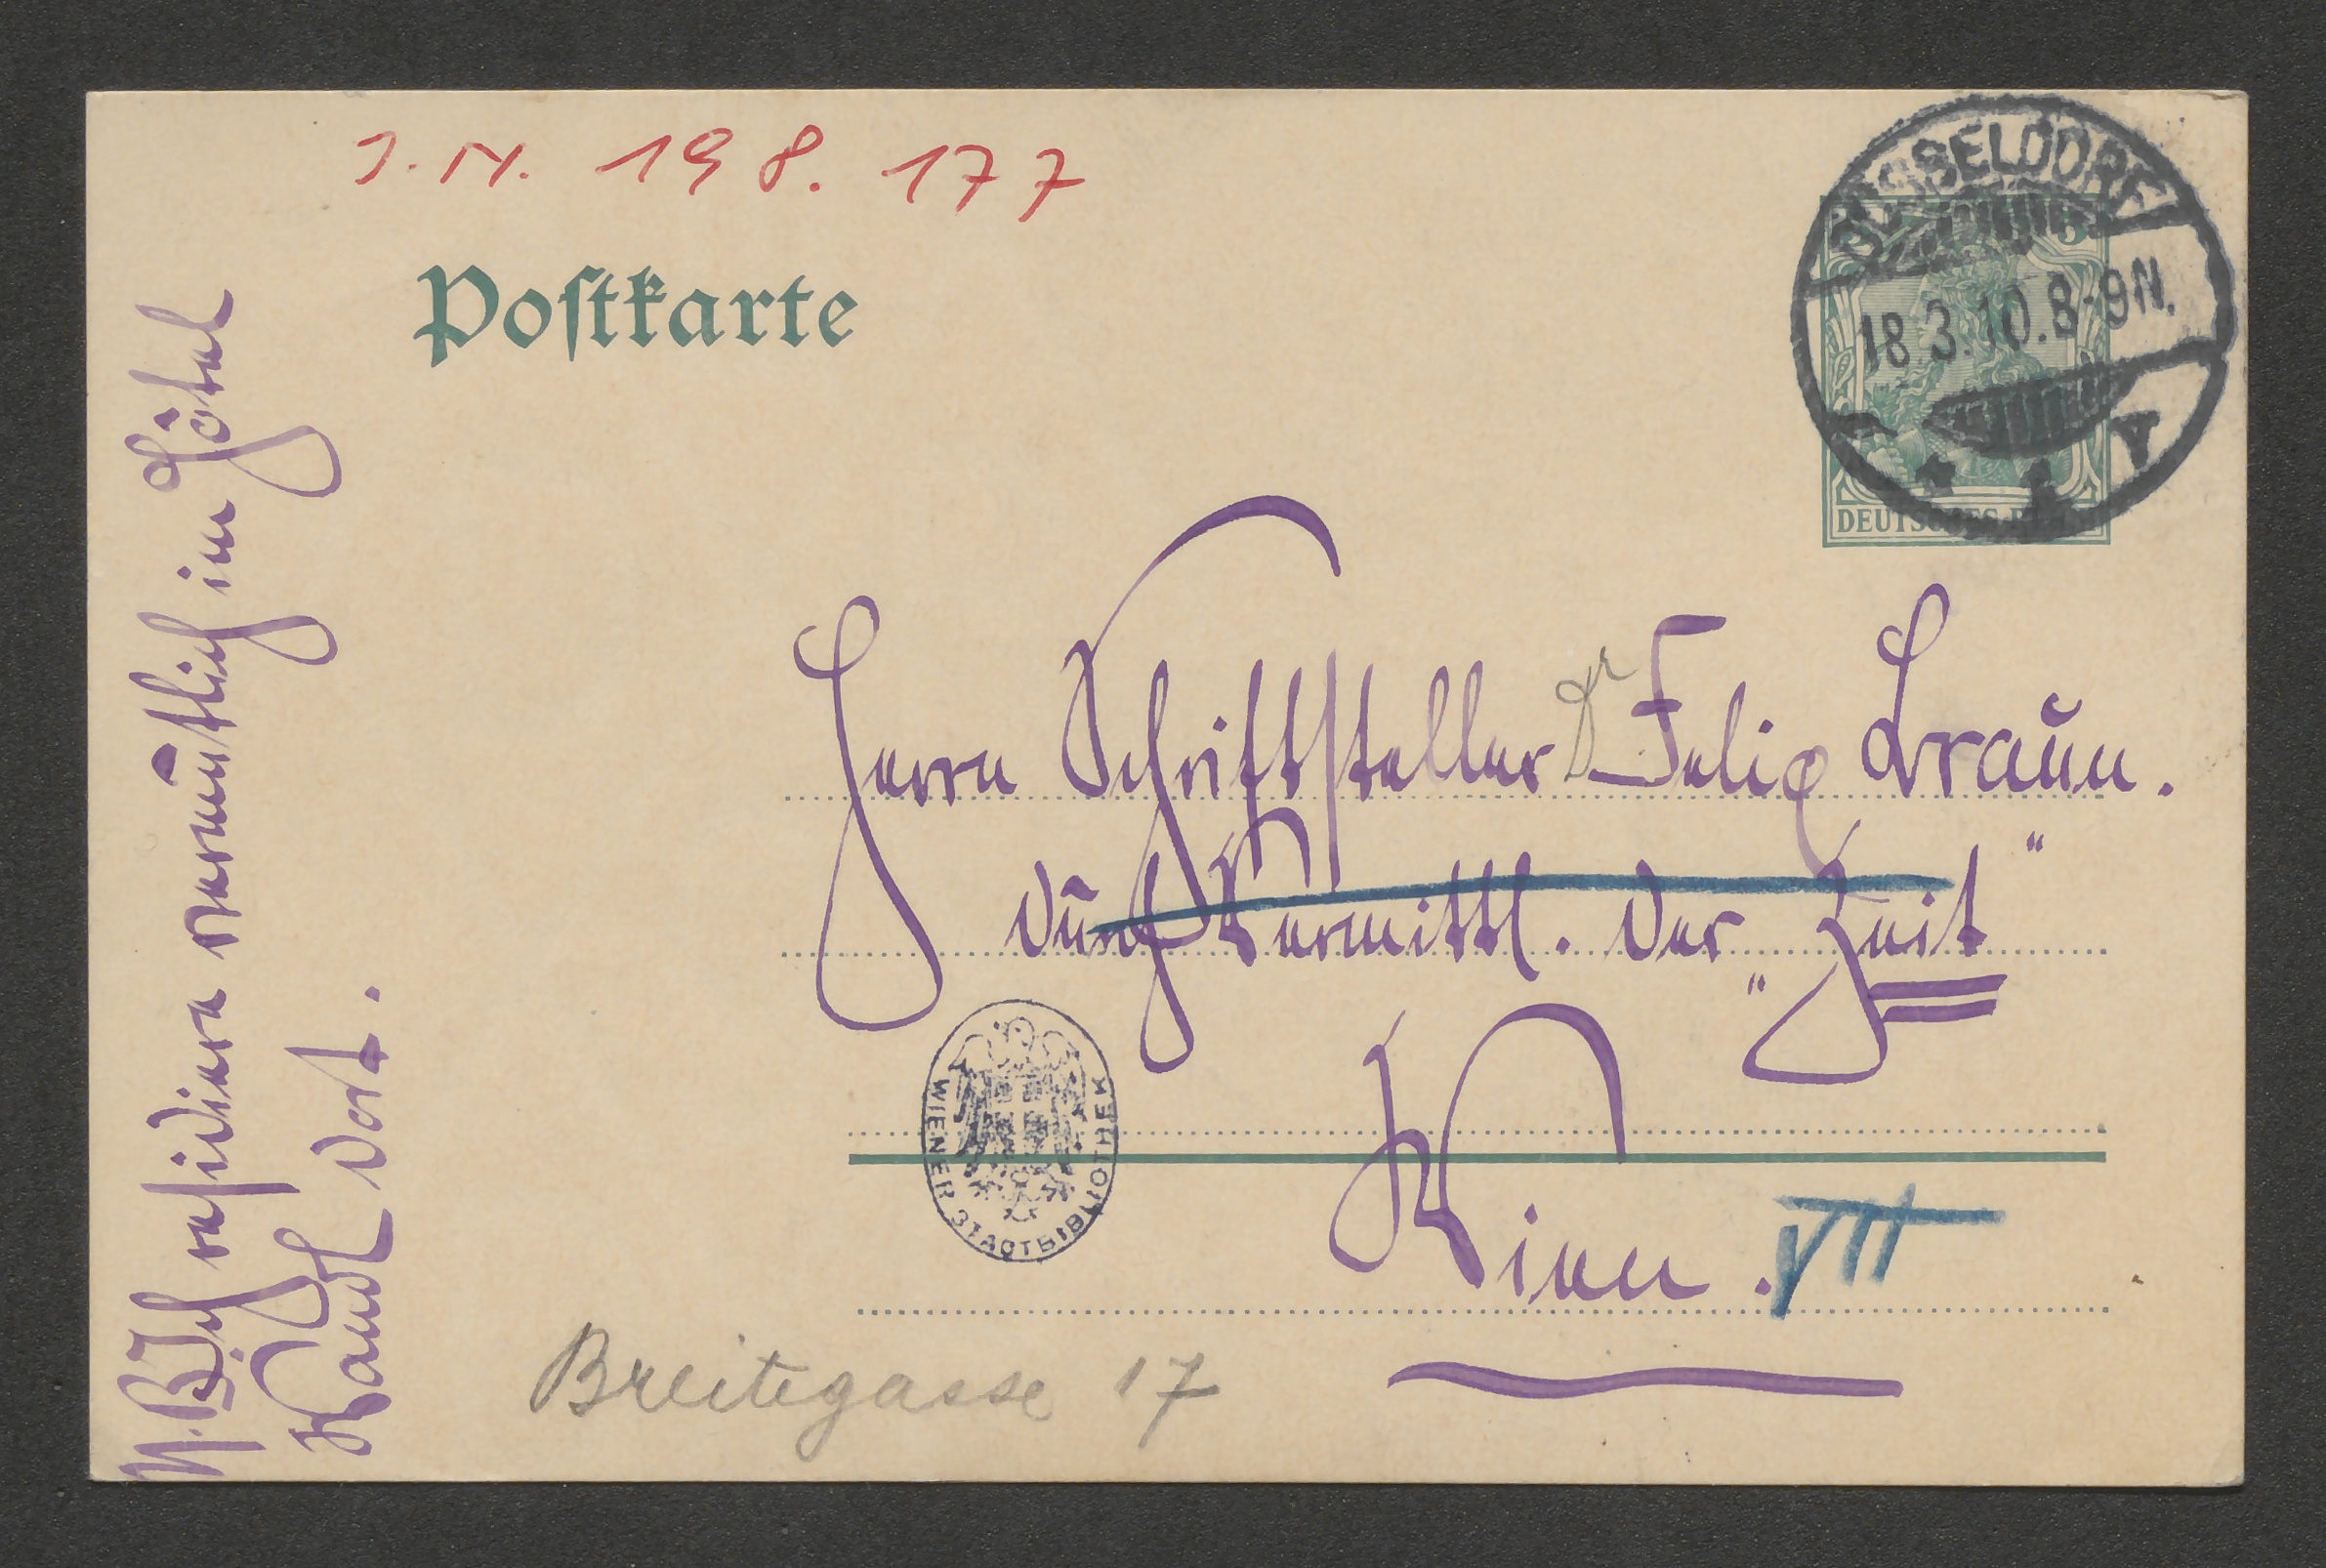 J.N. 198.177
Postkarte
DÜSSELDORF
18.3.10.8-9N.
* 1 v
5
DEUTSCHES REICH
Herrn Schriftsteller Dr Felix Braun.
durch Vermittl. der „Zeit"
Wien. VII
WIENER STADTBIBLIOTHEK
Breitegasse 17
N.B. Ich residiere vermutlich im Hôtel
Wandl dort.